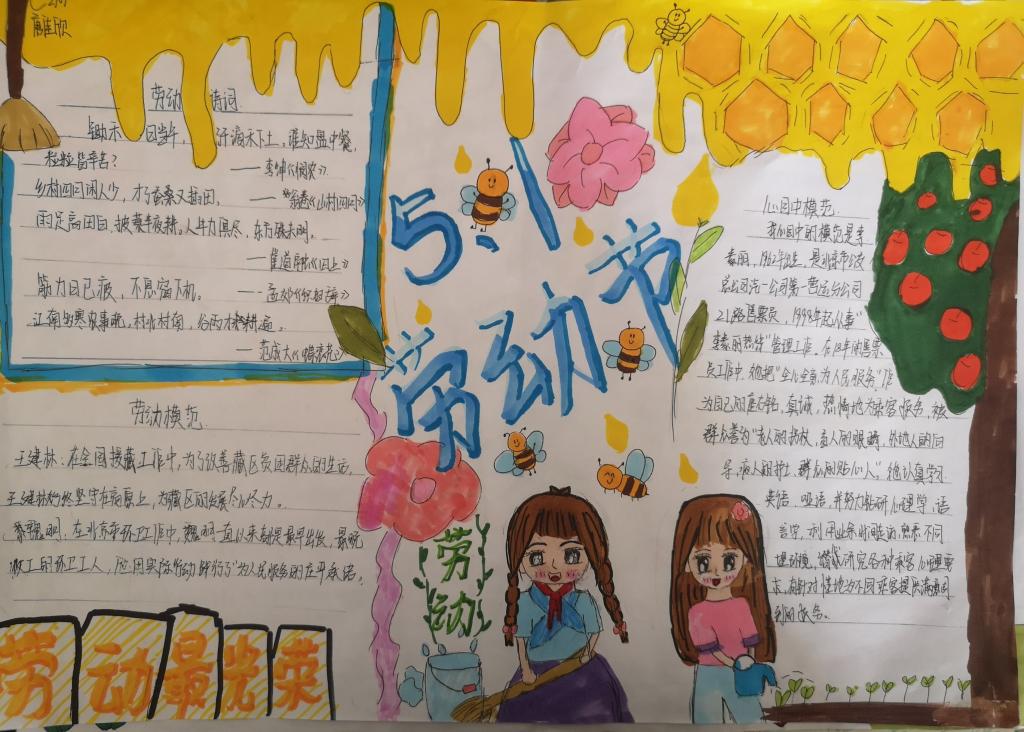 劳动 诗词
锄禾 日当午， 汗滴禾下土，谁知盘中餐，
粒粒皆辛苦？
——李绅《悯农》
乡村四月闲人少，才了蚕桑又插田。
——翁卷《山村四月》
雨足高田白，披蓑半夜耕。人牛力俱尽，东方殊未明。
——崔道融《田上》
筋力日已疲，不息窗下机。
——孟郊
江南
村北村南，谷雨才耕遍。
——范成大《蝶恋花》
劳动模范
王建林：在全国援藏工作中，为了改善藏区贫困群众的生活，
王建林始终坚守在高原上，为藏区的发展尽心尽力。
在北京环卫工作中，
一直以来都是最早出发，最晚
收工的环卫工人，他用实际行动践行了"为人民服务的庄严承诺。
劳动最光荣
5、1
劳动节
劳动
心目中模范
我心目中的模范是李
素丽，1962年出生，是北京市公交
总公司
公司第一营运分公司
21路售票员，1999年起从事"
李素丽热线"管理工作，在18年的售票
员工作中，她把"全心全意为人民服务"作
为自己的座右铭，真诚，热情地为乘客服务，被
群众誉为"老人的拐杖，盲人的眼睛，外地人的向
导，病人的护士，群众的贴心人"。她认真学习
英语、哑语，并努力钻研心理学、语
言学，利用业余时间走访，熟悉不同
地理环境，潜心研究各种乘客心理要
求，有针对性地为不同乘客提供满意周
到的服务。